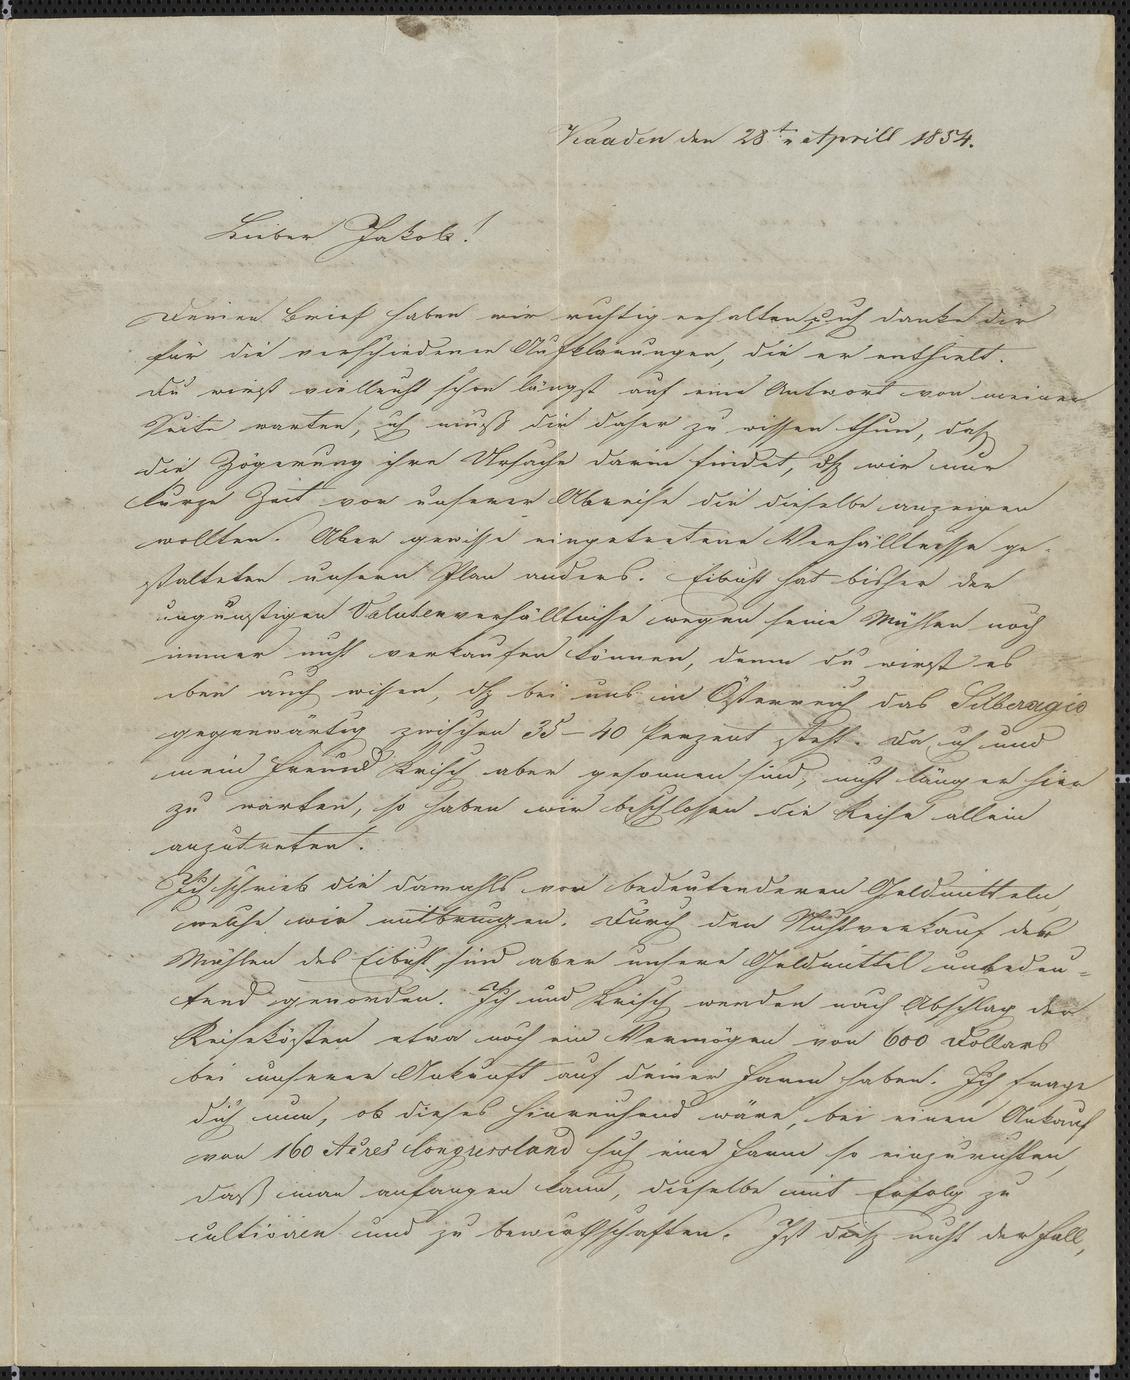 Kaaden den 28t. Aprill 1854.
Lieber Jakob!
Deinen Brief haben wir richtig erhalten, ich danke dir
für die verschiedenen Aufklärungen, die er enthielt.
Du wirst vielleicht schon längst auf eine Antwort von meiner
Seite warten, ich muß dir daher zu wissen thun, daß
die Zögerung ihre Ursache darin findet, dß wir nur
kurze Zeit vor unserer Abreise dir dieselbe anzeigen
wollten. Aber gewisse eingetretene Verhälltnisse ge-
stalteten unsern Plan anders. Eibicht hat bisher der
ungünstigen Valutenverhälltnisse wegen seine Mühlen noch
immer nicht verkaufen können, denn du wirst es
eben auch wissen, dß bei uns in Österreich das Silberagio
gegenwärtig zwischen 35 – 40 Perzent steht. Da ich und
mein Freund Krisch aber gesonnen sind, nicht länger hier
zu warten, so haben wir beschlossen die Reise allein
anzutreten.
Ich schrieb dir damahls von bedeutenderen Geldmitteln,
welche wir mitbringen. Durch den Nichtverkauf der
Mühlen des Eibicht sind aber unsere Geldmittel unbedeu-
tend geworden. Ich und Krisch werden nach Abschlag der
Reisekösten etwa noch ein Vermögen von 600 Dollars
bei unserer Ankunft auf deiner Farm haben. Ich frage
dich nun, ob dieses hinreichend wäre, bei einen Ankauf
von 160 Acres Congressland sich eine Farm so einzurichten,
daß man anfangen kann, dieselbe mit Erfolg zu
cultiviren und zu bewirthschaften. Ist dieß nicht der Fall,